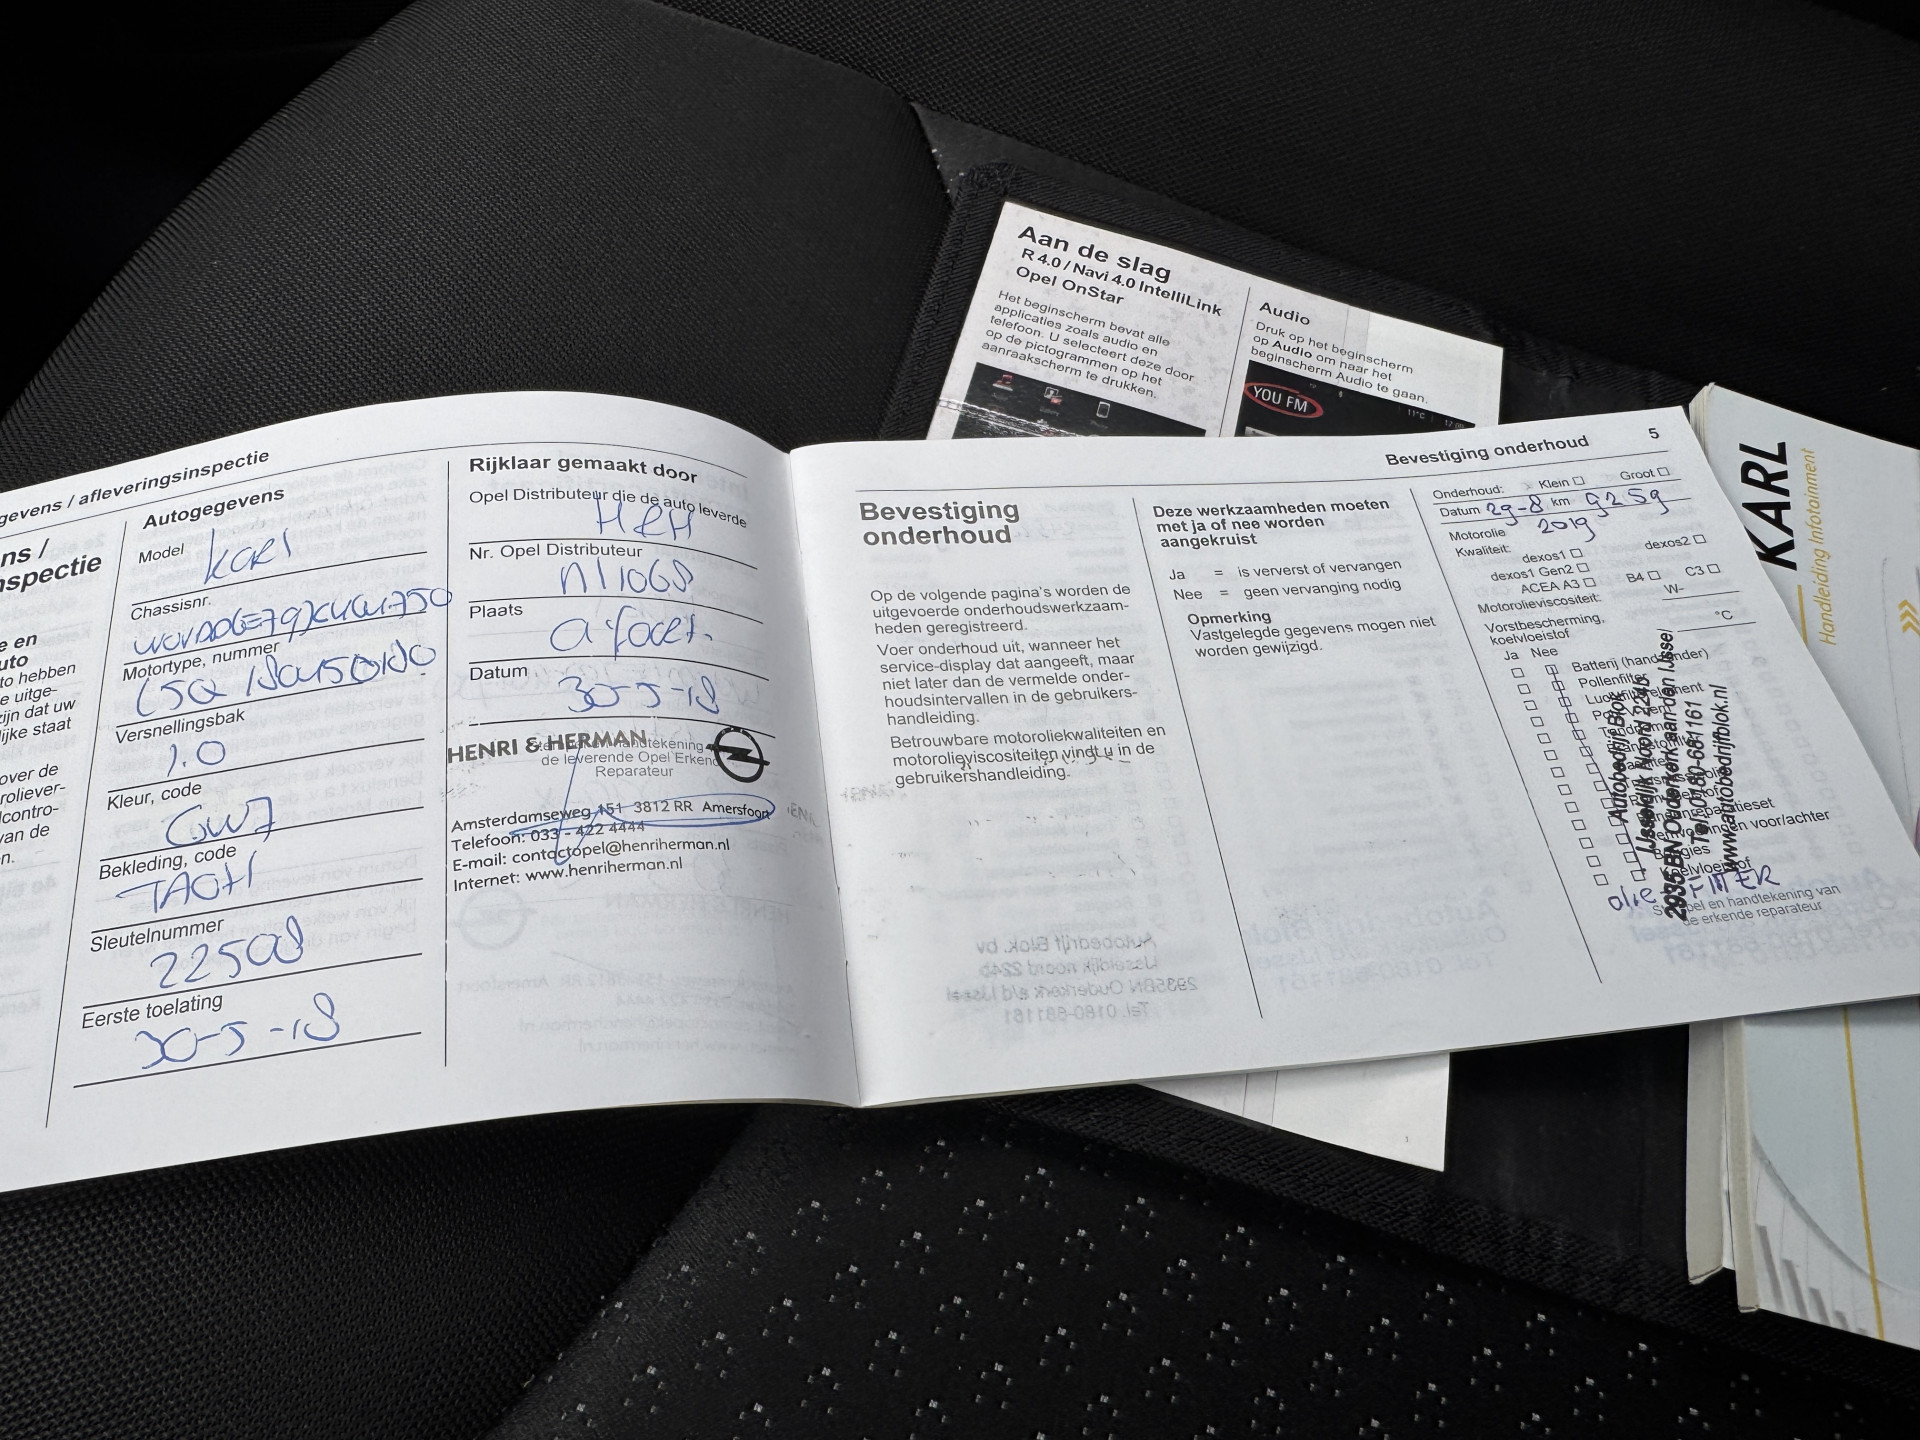 Aan de slag
R 4.0 / Navi 4.0 IntelliLink
Opel OnStar
Het beginscherm bevat alle
applicaties zoals audio en
telefoon. U selecteert deze door
op de pictogrammen op het
aanraakscherm te drukken.
Audio
Druk op het beginscherm
op Audio om naar het
beginscherm Audio te gaan.
YOU FM
11°C
KARL
Handleiding Infotainment
gevens / afleveringsinspectie
ns /
nspectie
e en
uto
to hebben
e uitge-
zijn dat uw
lijke staat
over de
roliever-
lcontro-
van de
n.
Autogegevens
Model
Karl
Chassisnr.
Motortype, nummer
Versnellingsbak
1.0
Kleur, code
GW7
Bekleding, code
TAOH
Sleutelnummer
22508
Eerste toelating
30-5-18
Rijklaar gemaakt door
Opel Distributeur die de auto leverde
H&H
Nr. Opel Distributeur
Nl1068
Plaats
A'foort.
Datum
30-5-18
HENRI & HERMAN
Stempel en handtekening
de leverende Opel Erkend
Reparateur
Amsterdamseweg 151 3812 RR Amersfoort
Telefoon: 033 - 422 4444
E-mail: contactopel@henriherman.nl
Internet: www.henriherman.nl
Bevestiging onderhoud 5
Bevestiging
onderhoud
Op de volgende pagina's worden de
uitgevoerde onderhoudswerkzaam-
heden geregistreerd.
Voer onderhoud uit, wanneer het
service-display dat aangeeft, maar
niet later dan de vermelde onder-
houdsintervallen in de gebruikers-
handleiding.
Betrouwbare motoroliekwaliteiten en
motorolieviscositeiten vindt u in de
gebruikershandleiding.
Deze werkzaamheden moeten
met ja of nee worden
aangekruist
Ja = is ververst of vervangen
Nee = geen vervanging nodig
Opmerking
Vastgelegde gegevens mogen niet
worden gewijzigd.
Onderhoud: Klein Groot
Datum 29-8 km 9259
2019
Motorolie
Kwaliteit:
dexos1 dexos2
dexos1 Gen2
ACEA A3 B4 C3
Motorolieviscositeit: W-
Vorstbescherming,
koelvloeistof °C
Ja Nee
Batterij (handzender)
Pollenfilter
Luchtfilterelement
voor/achter
Koelvloeistof
olie FILTER
Stempel en handtekening van
de erkende reparateur
Autobedrijf Blok
IJsseldijk Noord 224b
2935 BN Ouderkerk aan den IJssel
Tel. 0180-681161
www.autobedrijfblok.nl
1